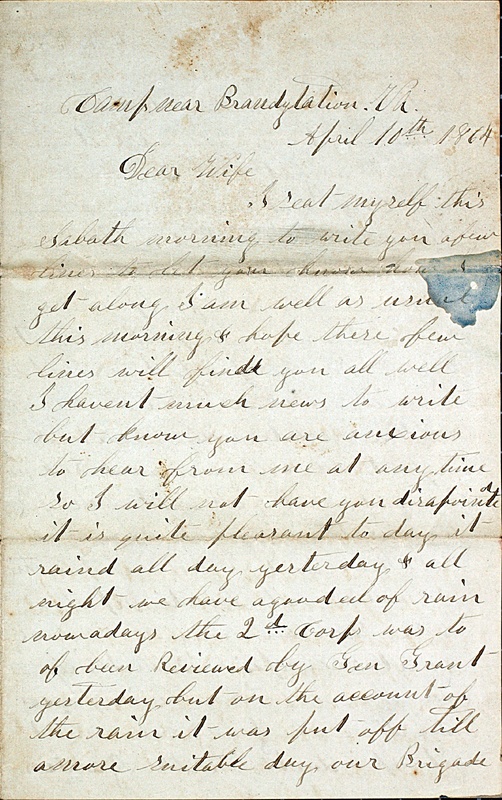 Camp near Brandystation. Va.
April 10th 1864
Dear Wife
I seat myself this
sabath morning to write you a few
lines to let you know how I
get along I am well as usual
this morning & hope these few
lines will find you all well
I havent much news to write
but know you are anxious
to hear from me at any time
so I will not have you disapointd
it is quite pleasant to day it
raind all day yesterday & all
night we have a good eel of rain
nowadays the 2d Corps was to
of been Reviewed by Gen Grant
yesterday but on the account of
the rain it was put off till
a more suitable day our Brigade